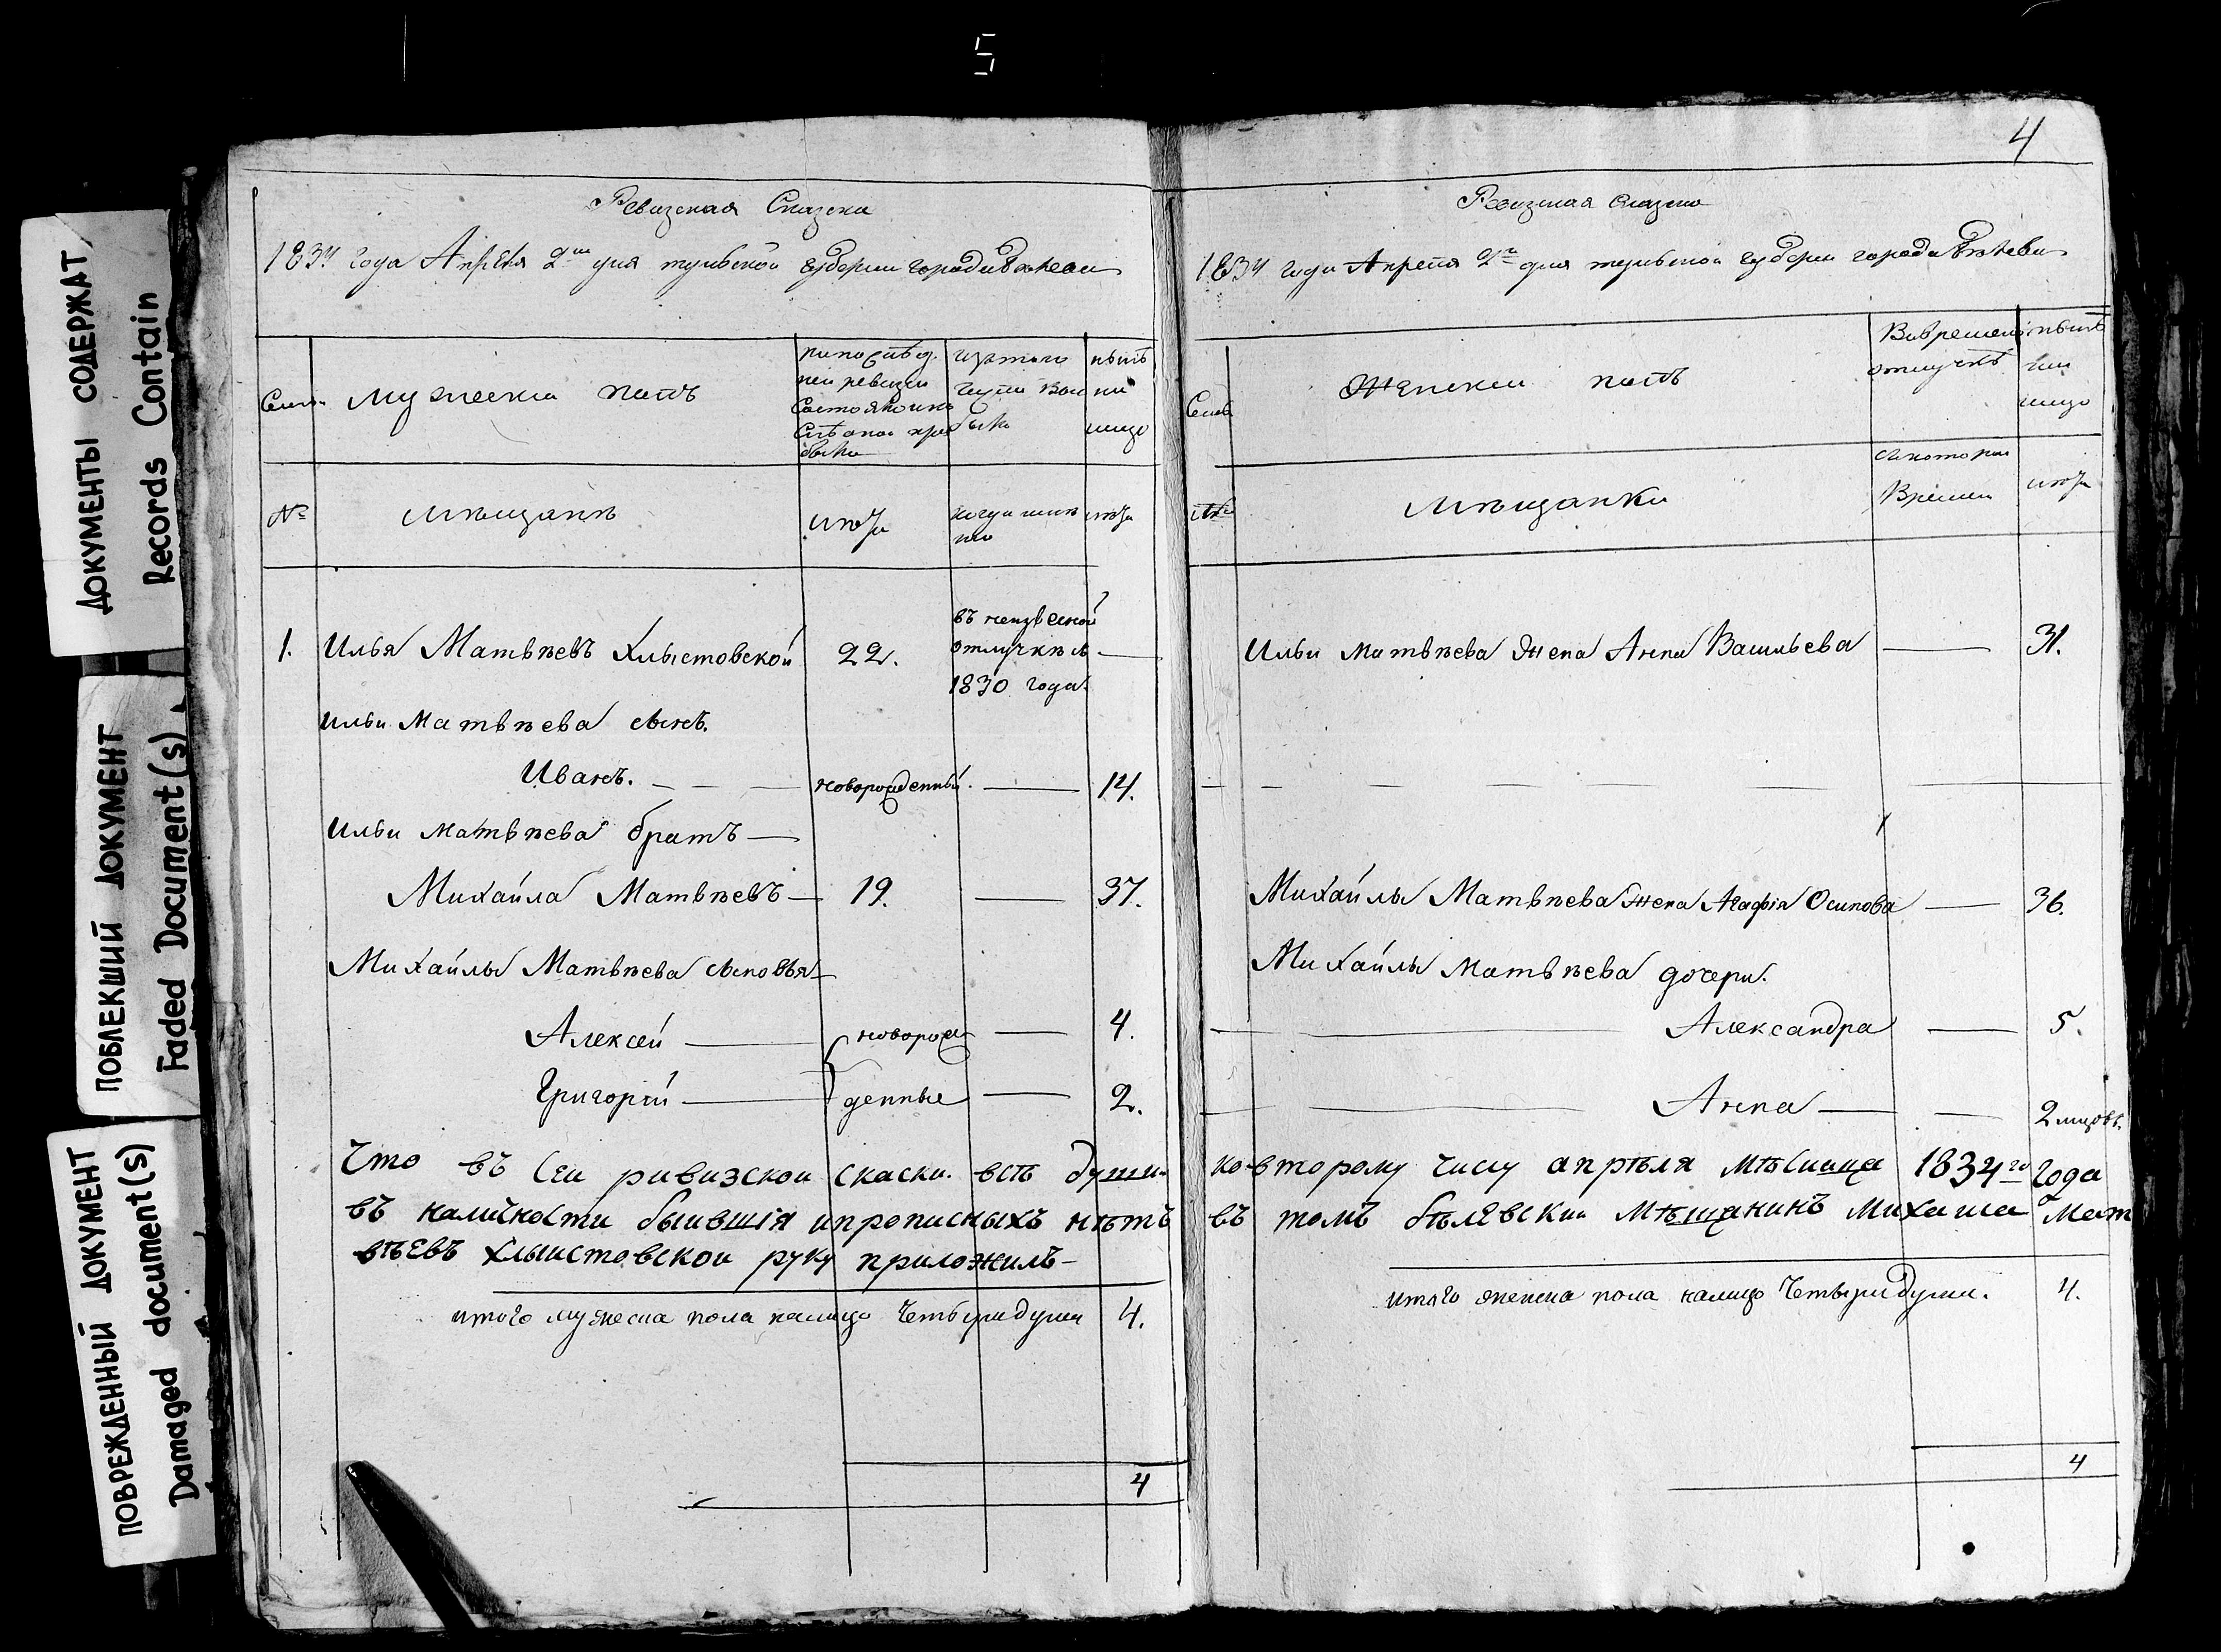 5
ДОКУМЕНТЫ СОДЕРЖАТ
Records Contain
ПОБЛЕКШИЙ ДОКУМЕНТ
Faded Document(s)
ПОВРЕЖДЕННЫЙ ДОКУМЕНТ
Damaged document(s)
Ревизская Сказка
1834 года Апреля 2го дня тульской губерни города Бѣлева
Семьи
мужескии полъ
по послѣд.
ней ревизеи
Состояло или
послѣ
было
изъ того
числа
было
нынѣ
на
лицо
№
мѣщанѣ
лѣта
когда имян
но
лѣта
1. Илья Матвѣевъ Хлыстовской 22.
въ неизвесной
отлучкѣ с
1830 года.
Ильи Матвѣева сынъ.
Иванъ. новорожденный. 14.
Ильи Матвѣева братъ
Михайла Матвѣевъ 19. 37.
Михайлы Матвѣева сыновья
Алексей новорож 4.
Григорѣй денные 2.
Что въ сеи ривизскои скаски. всѣ души
въ наличности бывшія ипрописныхъ нѣтъ
вѣевъ хлыистовскои руку приложилъ
итого мужеска пола налицо Четыри души 4.
4
4
Ревизская Сказка
1834 года Апреля 2го дня тульской губерни города Бѣлева
Семьи
Женскии полъ
Вовременной
отлучкѣ
нынѣ
на
лицо
№
мѣщанки
Съкотораго
Времени
лѣта
Ильи Матвѣева жена Анна Васильева 31.
Михайлы Матвѣева жена Агафія Осипова 36.
Михайлы Матвѣева дочери.
Александра 5.
Анна 2 мцовъ.
ко второму числу апрѣля мѣсица 1834го Года
въ томъ бѣлевскии мѣщанинъ Михаила Мат
итого женска пола налицо Четыри души. 4.
4